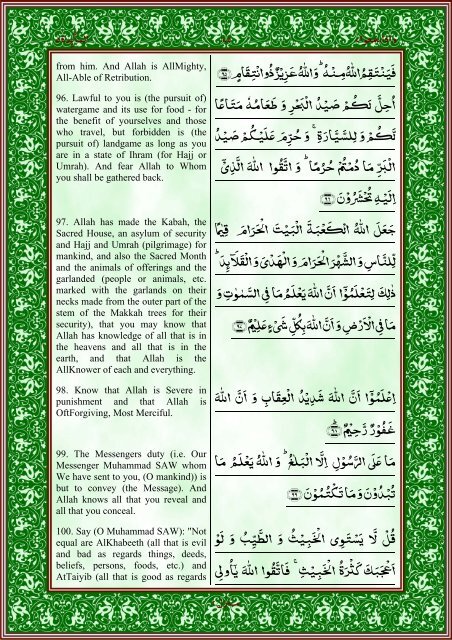 from him. And Allah is AllMighty,
All-Able of Retribution.
فَيَنْتَقِمُ اللّٰهُ مِنْهُ ؕ وَاللّٰهُ عَزِيْزٌ ذُو انْتِقَامٍ ﴿۹۵﴾
96. Lawful to you is (the pursuit of)
watergame and its use for food - for
the benefit of yourselves and those
who travel, but forbidden is (the
pursuit of) landgame as long as you
are in a state of Ihram (for Hajj or
Umrah). And fear Allah to Whom
you shall be gathered back.
اُحِلَّ لَكُمْ صَيْدُ الْبَحْرِ وَ طَعَامُهٗ مَتَاعًا
لَّكُمْ وَ لِلسَّيَّارَةِ ۚ وَ حُرِّمَ عَلَيْكُمْ صَيْدُ
الْبَرِّ مَا دُمْتُمْ حُرُمًا ؕ وَ اتَّقُوا اللّٰهَ الَّذِيْۤ
اِلَيْهِ تُحْشَرُوْنَ ﴿۹۶﴾
97. Allah has made the Kabah, the
Sacred House, an asylum of security
and Hajj and Umrah (pilgrimage) for
mankind, and also the Sacred Month
and the animals of offerings and the
garlanded (people or animals, etc.
marked with the garlands on their
necks made from the outer part of the
stem of the Makkah trees for their
security), that you may know that
Allah has knowledge of all that is in
the heavens and all that is in the
earth, and that Allah is the
AllKnower of each and everything.
جَعَلَ اللّٰهُ الْكَعْبَةَ الْبَيْتَ الْحَرَامَ قِيٰمًا
لِّلنَّاسِ وَ الشَّهْرَ الْحَرَامَ وَ الْهَدْيَ وَ الْقَلَآئِدَ ؕ
ذٰلِكَ لِتَعْلَمُوْۤا اَنَّ اللّٰهَ يَعْلَمُ مَا فِي السَّمٰوٰتِ وَ
مَا فِي الْاَرْضِ وَ اَنَّ اللّٰهَ بِكُلِّ شَيْءٍ عَلِيْمٌ ﴿۹۷﴾
98. Know that Allah is Severe in
punishment and that Allah is
OftForgiving, Most Merciful.
اِعْلَمُوْۤا اَنَّ اللّٰهَ شَدِيْدُ الْعِقَابِ وَ اَنَّ اللّٰهَ
غَفُوْرٌ رَّحِيْمٌ ﴿۹۸﴾
99. The Messengers duty (i.e. Our
Messenger Muhammad SAW whom
We have sent to you, (O mankind)) is
but to convey (the Message). And
Allah knows all that you reveal and
all that you conceal.
مَا عَلَى الرَّسُوْلِ اِلَّا الْبَلٰغُ ؕ وَ اللّٰهُ يَعْلَمُ مَا
تُبْدُوْنَ وَ مَا تَكْتُمُوْنَ ﴿۹۹﴾
100. Say (O Muhammad SAW): "Not
equal are AlKhabeeth (all that is evil
and bad as regards things, deeds,
beliefs, persons, foods, etc.) and
AtTaiyib (all that is good as regards
قُلْ لَّا يَسْتَوِي الْخَبِيْثُ وَ الطَّيِّبُ وَ لَوْ
اَعْجَبَكَ كَثْرَةُ الْخَبِيْثِ ۚ فَاتَّقُوا اللّٰهَ يٰۤاُولِي